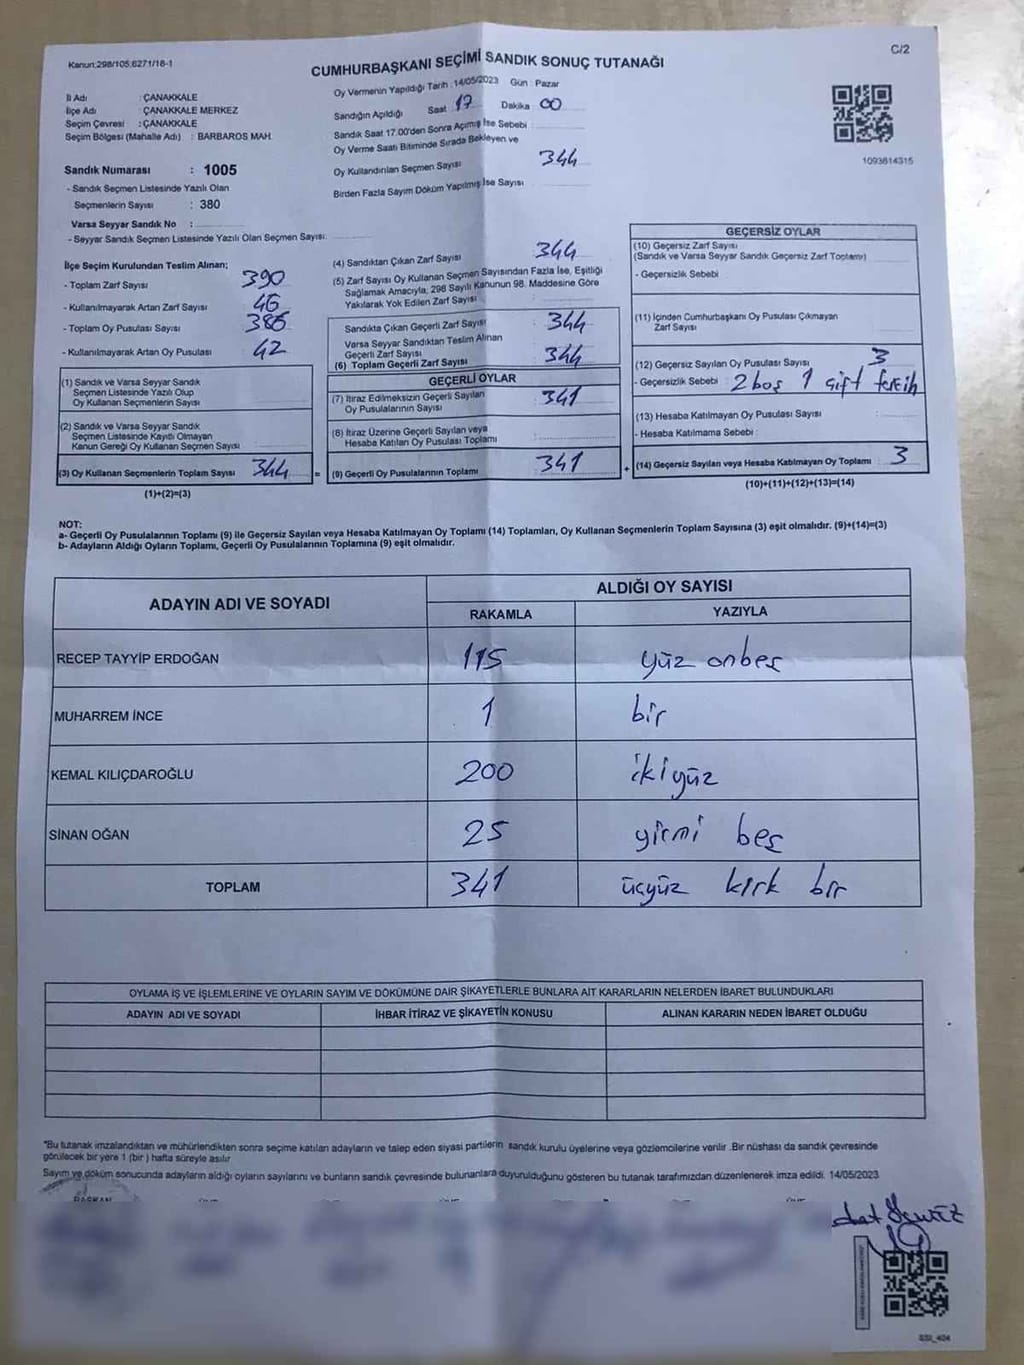 Kanun:298/105;6271/18-1
C/2
CUMHURBAŞKANI SEÇİMİ SANDIK SONUÇ TUTANAĞI
İl Adı : ÇANAKKALE
İlçe Adı : ÇANAKKALE MERKEZ
Seçim Çevresi : ÇANAKKALE
Seçim Bölgesi (Mahalle Adı) : BARBAROS MAH.
Sandık Numarası : 1005
- Sandık Seçmen Listesinde Yazılı Olan
Seçmenlerin Sayısı : 380
Varsa Seyyar Sandık No :
- Seyyar Sandık Seçmen Listesinde Yazılı Olan Seçmen Sayısı:
Oy Vermenin Yapıldığı Tarih :14/05/2023 Gün : Pazar
Sandığın Açıldığı Saat 17 Dakika 00
Sandık Saat 17.00'den Sonra Açılmış İse Sebebi :
Oy Verme Saati Bitiminde Sırada Bekleyen ve
Oy Kullandırılan Seçmen Sayısı 344
Birden Fazla Sayım Döküm Yapılmış İse Sayısı :
1093614315
İlçe Seçim Kurulundan Teslim Alınan;
- Toplam Zarf Sayısı 390
- Kullanılmayarak Artan Zarf Sayısı 46
- Toplam Oy Pusulası Sayısı 386
- Kullanılmayarak Artan Oy Pusulası 42
(1) Sandık ve Varsa Seyyar Sandık
Seçmen Listesinde Yazılı Olup
Oy Kullanan Seçmenlerin Sayısı
(2) Sandık ve Varsa Seyyar Sandık
Seçmen Listesinde Kayıtlı Olmayan
Kanun Gereği Oy Kullanan Seçmen Sayısı
(3) Oy Kullanan Seçmenlerin Toplam Sayısı 344 =
(1)+(2)=(3)
(4) Sandıktan Çıkan Zarf Sayısı 344
(5) Zarf Sayısı Oy Kullanan Seçmen Sayısından Fazla İse, Eşitliği
Sağlamak Amacıyla, 298 Sayılı Kanunun 98. Maddesine Göre
Yakılarak Yok Edilen Zarf Sayısı :
Sandıkta Çıkan Geçerli Zarf Sayısı : 344
Varsa Seyyar Sandıktan Teslim Alınan
Geçerli Zarf Sayısı
(6) Toplam Geçerli Zarf Sayısı 344
GEÇERLİ OYLAR
(7) İtiraz Edilmeksizin Geçerli Sayılan
Oy Pusulalarının Sayısı 341
(8) İtiraz Üzerine Geçerli Sayılan veya
Hesaba Katılan Oy Pusulası Toplamı :
(9) Geçerli Oy Pusulalarının Toplamı 341 +
GEÇERSİZ OYLAR
(10) Geçersiz Zarf Sayısı
(Sandık ve Varsa Seyyar Sandık Geçersiz Zarf Toplamı)
- Geçersizlik Sebebi
(11) İçinden Cumhurbaşkanı Oy Pusulası Çıkmayan
Zarf Sayısı
(12) Geçersiz Sayılan Oy Pusulası Sayısı 3
- Geçersizlik Sebebi : 2 boş 1 çift tercih
(13) Hesaba Katılmayan Oy Pusulası Sayısı
- Hesaba Katılmama Sebebi :
(14) Geçersiz Sayılan veya Hesaba Katılmayan Oy Toplamı : 3
(10)+(11)+(12)+(13)=(14)
NOT:
a- Geçerli Oy Pusulalarının Toplamı (9) ile Geçersiz Sayılan veya Hesaba Katılmayan Oy Toplamı (14) Toplamları, Oy Kullanan Seçmenlerin Toplam Sayısına (3) eşit olmalıdır. (9)+(14)=(3)
b- Adayların Aldığı Oyların Toplamı, Geçerli Oy Pusulalarının Toplamına (9) eşit olmalıdır.
ADAYIN ADI VE SOYADI ALDIĞI OY SAYISI
RAKAMLA YAZIYLA
RECEP TAYYİP ERDOĞAN 115 yüz onbeş
MUHARREM İNCE 1 bir
KEMAL KILIÇDAROĞLU 200 ikiyüz
SİNAN OĞAN 25 yirmi beş
TOPLAM 341 üçyüz kırk bir
OYLAMA İŞ VE İŞLEMLERİNE VE OYLARIN SAYIM VE DÖKÜMÜNE DAİR ŞİKAYETLERLE BUNLARA AİT KARARLARIN NELERDEN İBARET BULUNDUKLARI
ADAYIN ADI VE SOYADI İHBAR İTİRAZ VE ŞİKAYETİN KONUSU ALINAN KARARIN NEDEN İBARET OLDUĞU
"Bu tutanak imzalandıktan ve mühürlendikten sonra seçime katılan adayların ve talep eden siyasi partilerin sandık kurulu üyelerine veya gözlemcilerine verilir .Bir nüshası da sandık çevresinde
görülecek bir yere 1 (bir ) hafta süreyle asılır
Sayım ve döküm sonucunda adayların aldığı oyların sayılarını ve bunların sandık çevresinde bulunanlara duyurulduğunu gösteren bu tutanak tarafımızdan düzenlenerek imza edildi. 14/05/2023
BAŞKAN
SSI_404